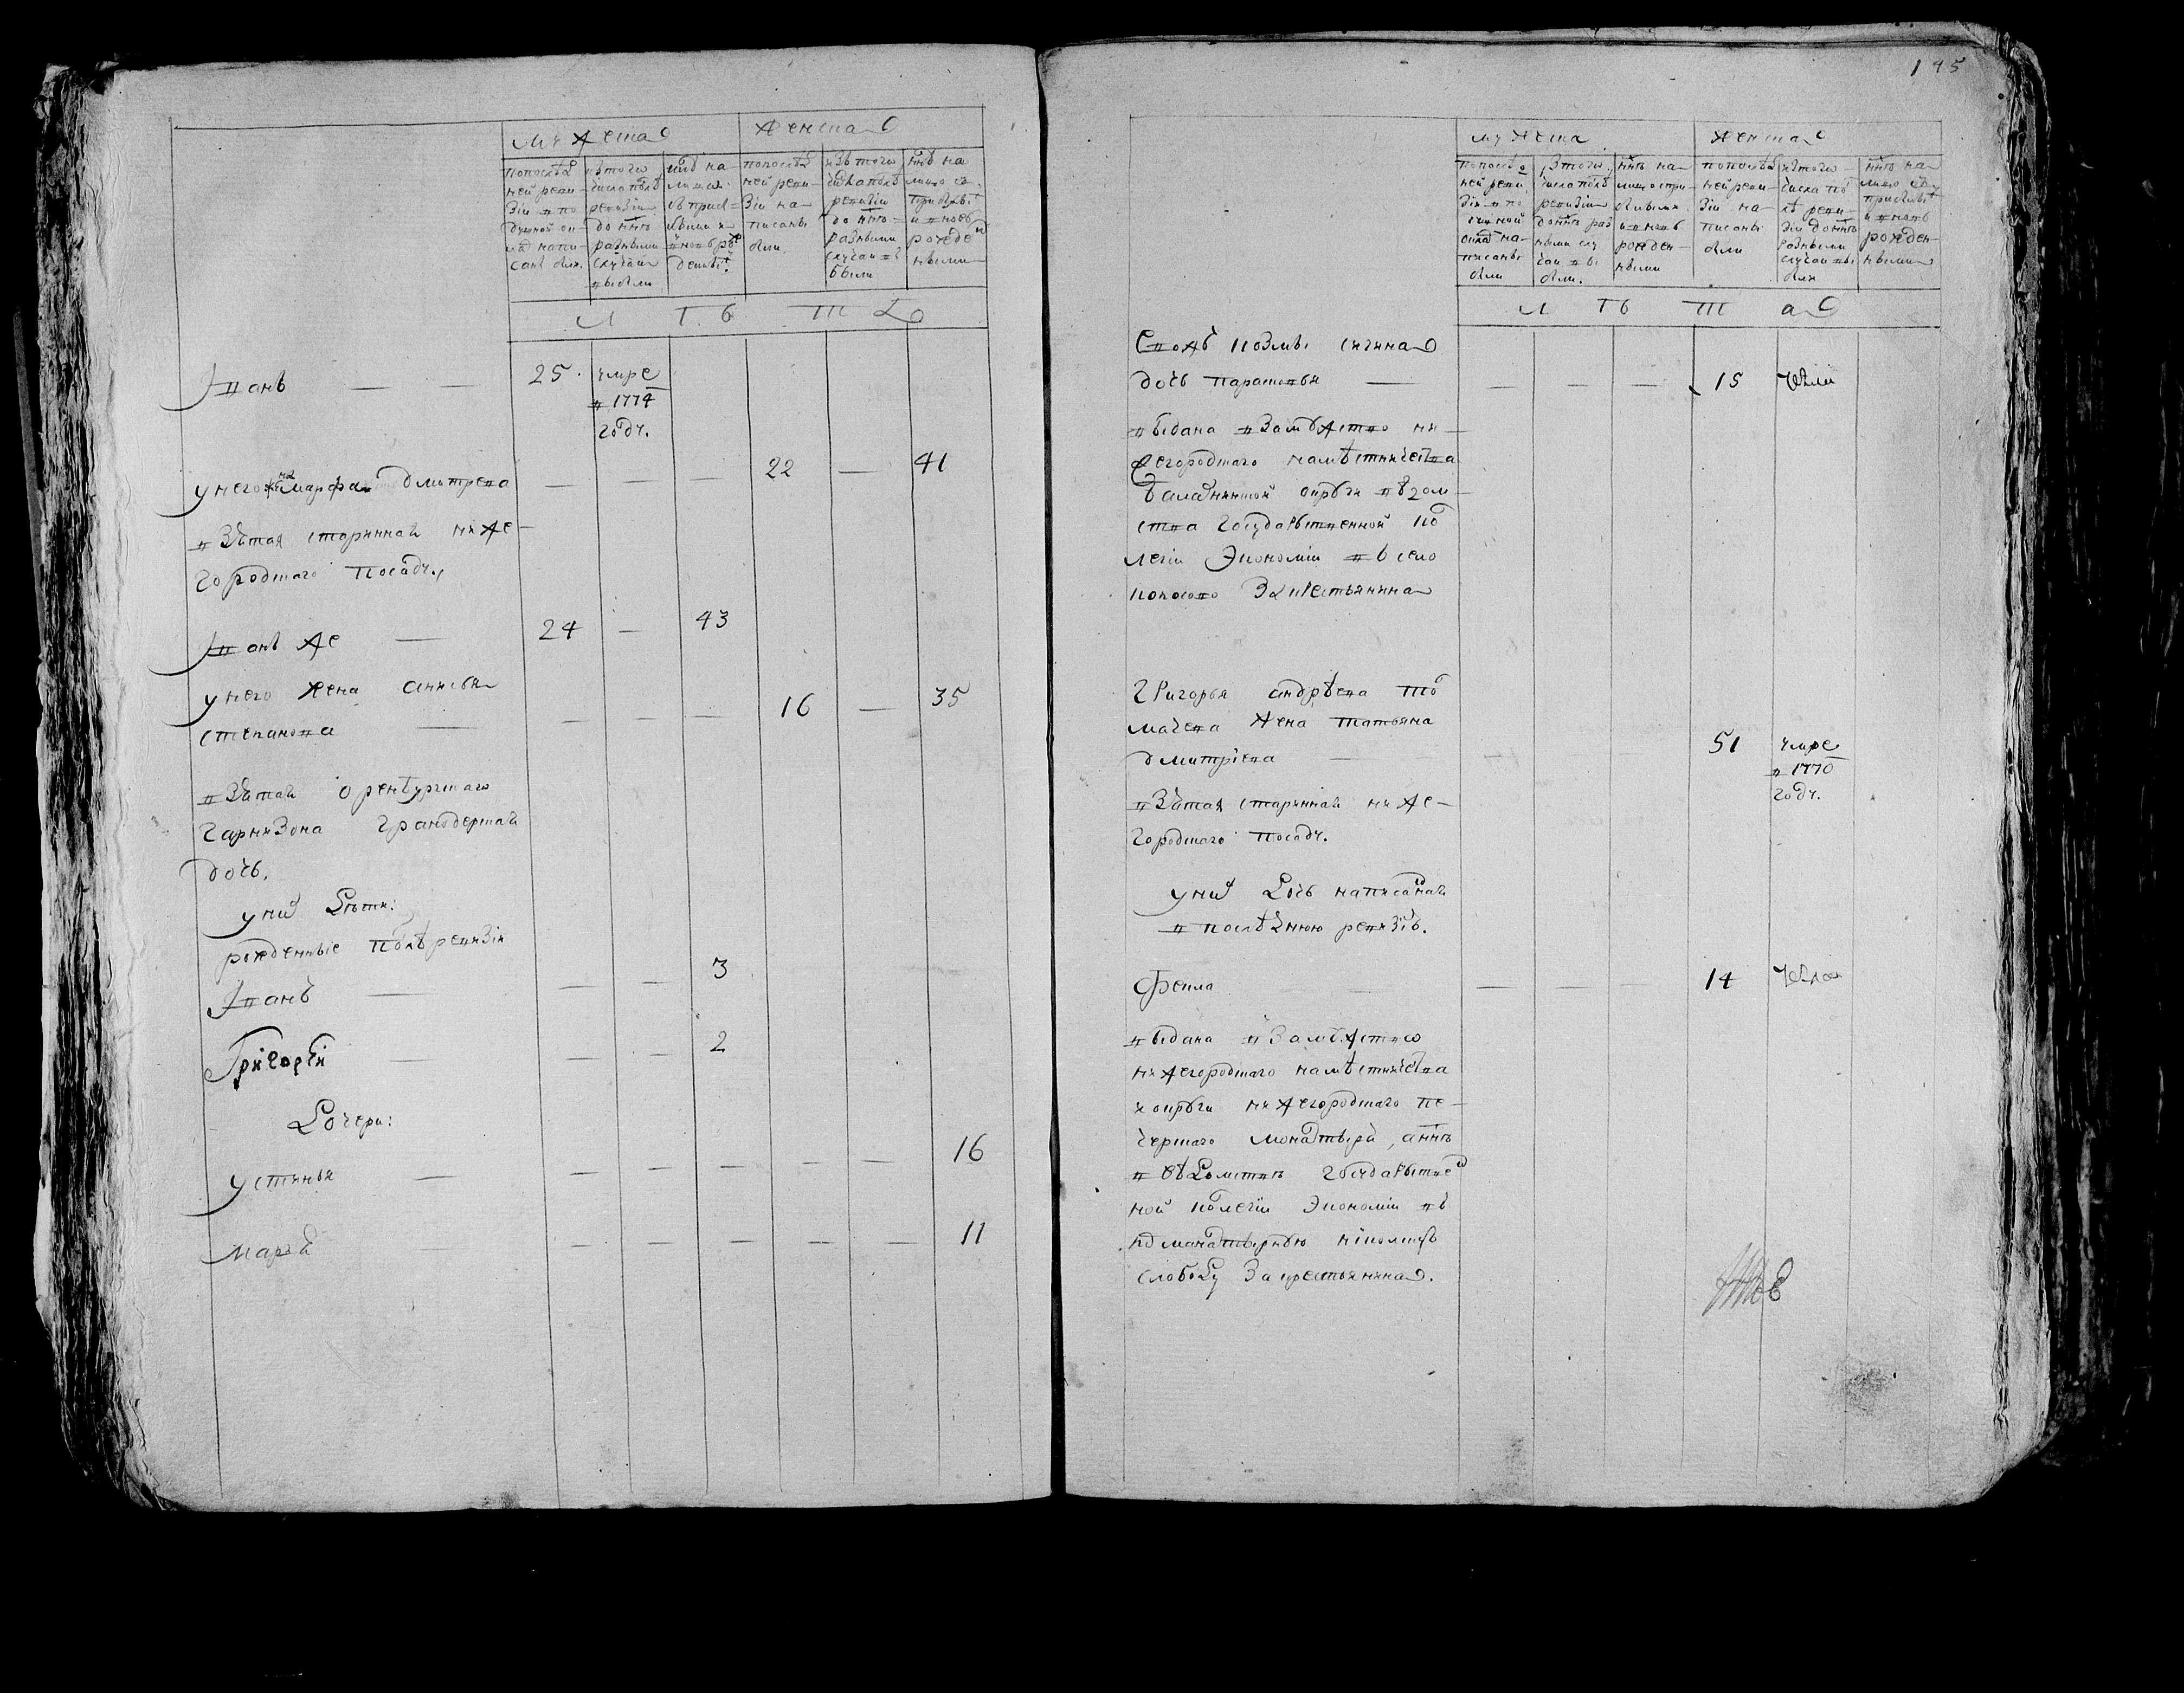 мужеска
женска
по послѣд
ней реви
зіи и по
душной ок
лад напи
саны были.
из того
числа послѣ
ревизіи
до нынѣ
разными
случаи
выбыли
нынѣ на
лицо
с прис
бывшими и
вновь рож
денны.
по послѣд
ней реви
зіи на
писаны
были.
изъ того
числа послѣ
ревизіи
до нынѣ
разными
случаи вы
были
нынѣ на
лицо съ
прибывши
и вновь
рожден
ными
л ѣ т а
Иванъ 25. умре
в 1774
году.
у него жена марфа дмитрева 22 41
взятая стариннаи ниже
городскаго посаду,
Иванъ же 24 43
у него жена аннсья
степанова 16 35
взятаи оренбургскаго
гарнизона гранодерскаи
дочь.
у них дѣти:
рожденные послѣ ревизіи
Иванъ 3
Григорьи 2
дочери:
устинья 16
марья 11
195
мужеска
женска
по послѣд
ней реви
зіи и по
душной
оклад на
писаны
были
из того
числа послѣ
ревизіи
до нынѣ раз
ными слу
чаи вы
были.
нынѣ на
лицо с при
бывшими
и вновь
рожден
ными
по послѣд
ней реви
зіи на
писаны
были
из того
числа пос
лѣ реви
зіи до нынѣ
разными
случаи вы
были
нынѣ на
лицо съ
прибывши
и вновь
рожден
ными
л ѣ т а
Сновъ козмы сигина
дочь парасковья 15
выдана в замужство ни
жегородскаго намѣстничества
балахнинской округи ведом
ства государственной ко
легіи экономіи в село
копосово за крестьянина
григорья андрѣева тол
мачева жена татьяна
дмитріева 51 умре
в 1770
году.
взятая стариннаи ниже
городскаго посаду.
у них дочь написаннаи
в послѣднюю ревизію.
Фекла 14
выдана в замужство
нижегородскаго намѣстничества
и округи нижегородскаго пе
черскаго монастыря, а нынѣ
в вѣдомствѣ государствен
ной колегіи экономіи въ
подманастырную никольску
слободу за крестьянина.